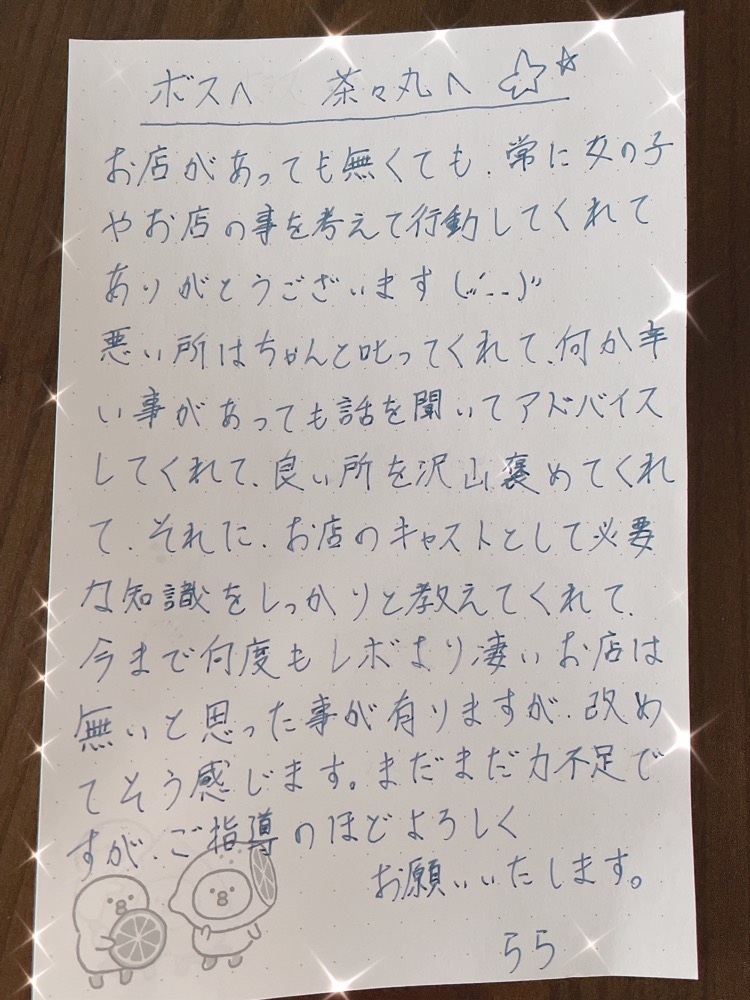 ボスへ 茶々丸へ ☆☆
お店があっても無くても、常に女の子
やお店の事を考えて行動してくれて
ありがとうございます(._.)"
悪い所はちゃんと叱ってくれて、何か辛
い事があっても話を聞いてアドバイス
してくれて、良い所を沢山褒めてくれ
て、それに、お店のキャストとして必要
な知識をしっかりと教えてくれて、
今まで何度もレボより凄いお店は
無いと思った事が有りますが、改め
てそう感じます。まだまだ力不足で
すが、ご指導のほどよろしく
お願いいたします。
らら